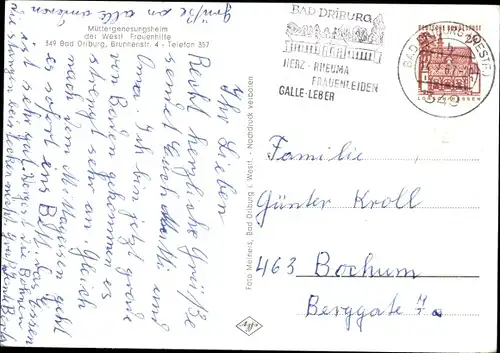 Müttergenesungsheim
der Westf. Frauenhilfe
349 Bad Driburg, Brunnenstr. 4 - Telefon 357
Ihr Lieben
Recht herzliche Grüße
sendet Euch Mutti und
Oma. Ich bin jetzt gerade
vom Baden gekommen es
strengt sehr an. Gleich
nach dem M. Essen geht
es sofort ins Bett. Das Essen
ist sehr gut. Vergeßt die Bohnen
Grüße an alle
Foto Meiners, Bad Driburg i. Westf. - Nachdruck verboten
BAD DRIBURG
HERZ-RHEUMA
FRAUENLEIDEN
GALLE-LEBER
DEUTSCHE BUNDESPOST
BAD DRIBURG (WESTF)
Familie
Günter Kroll
463 Bochum
Berggate